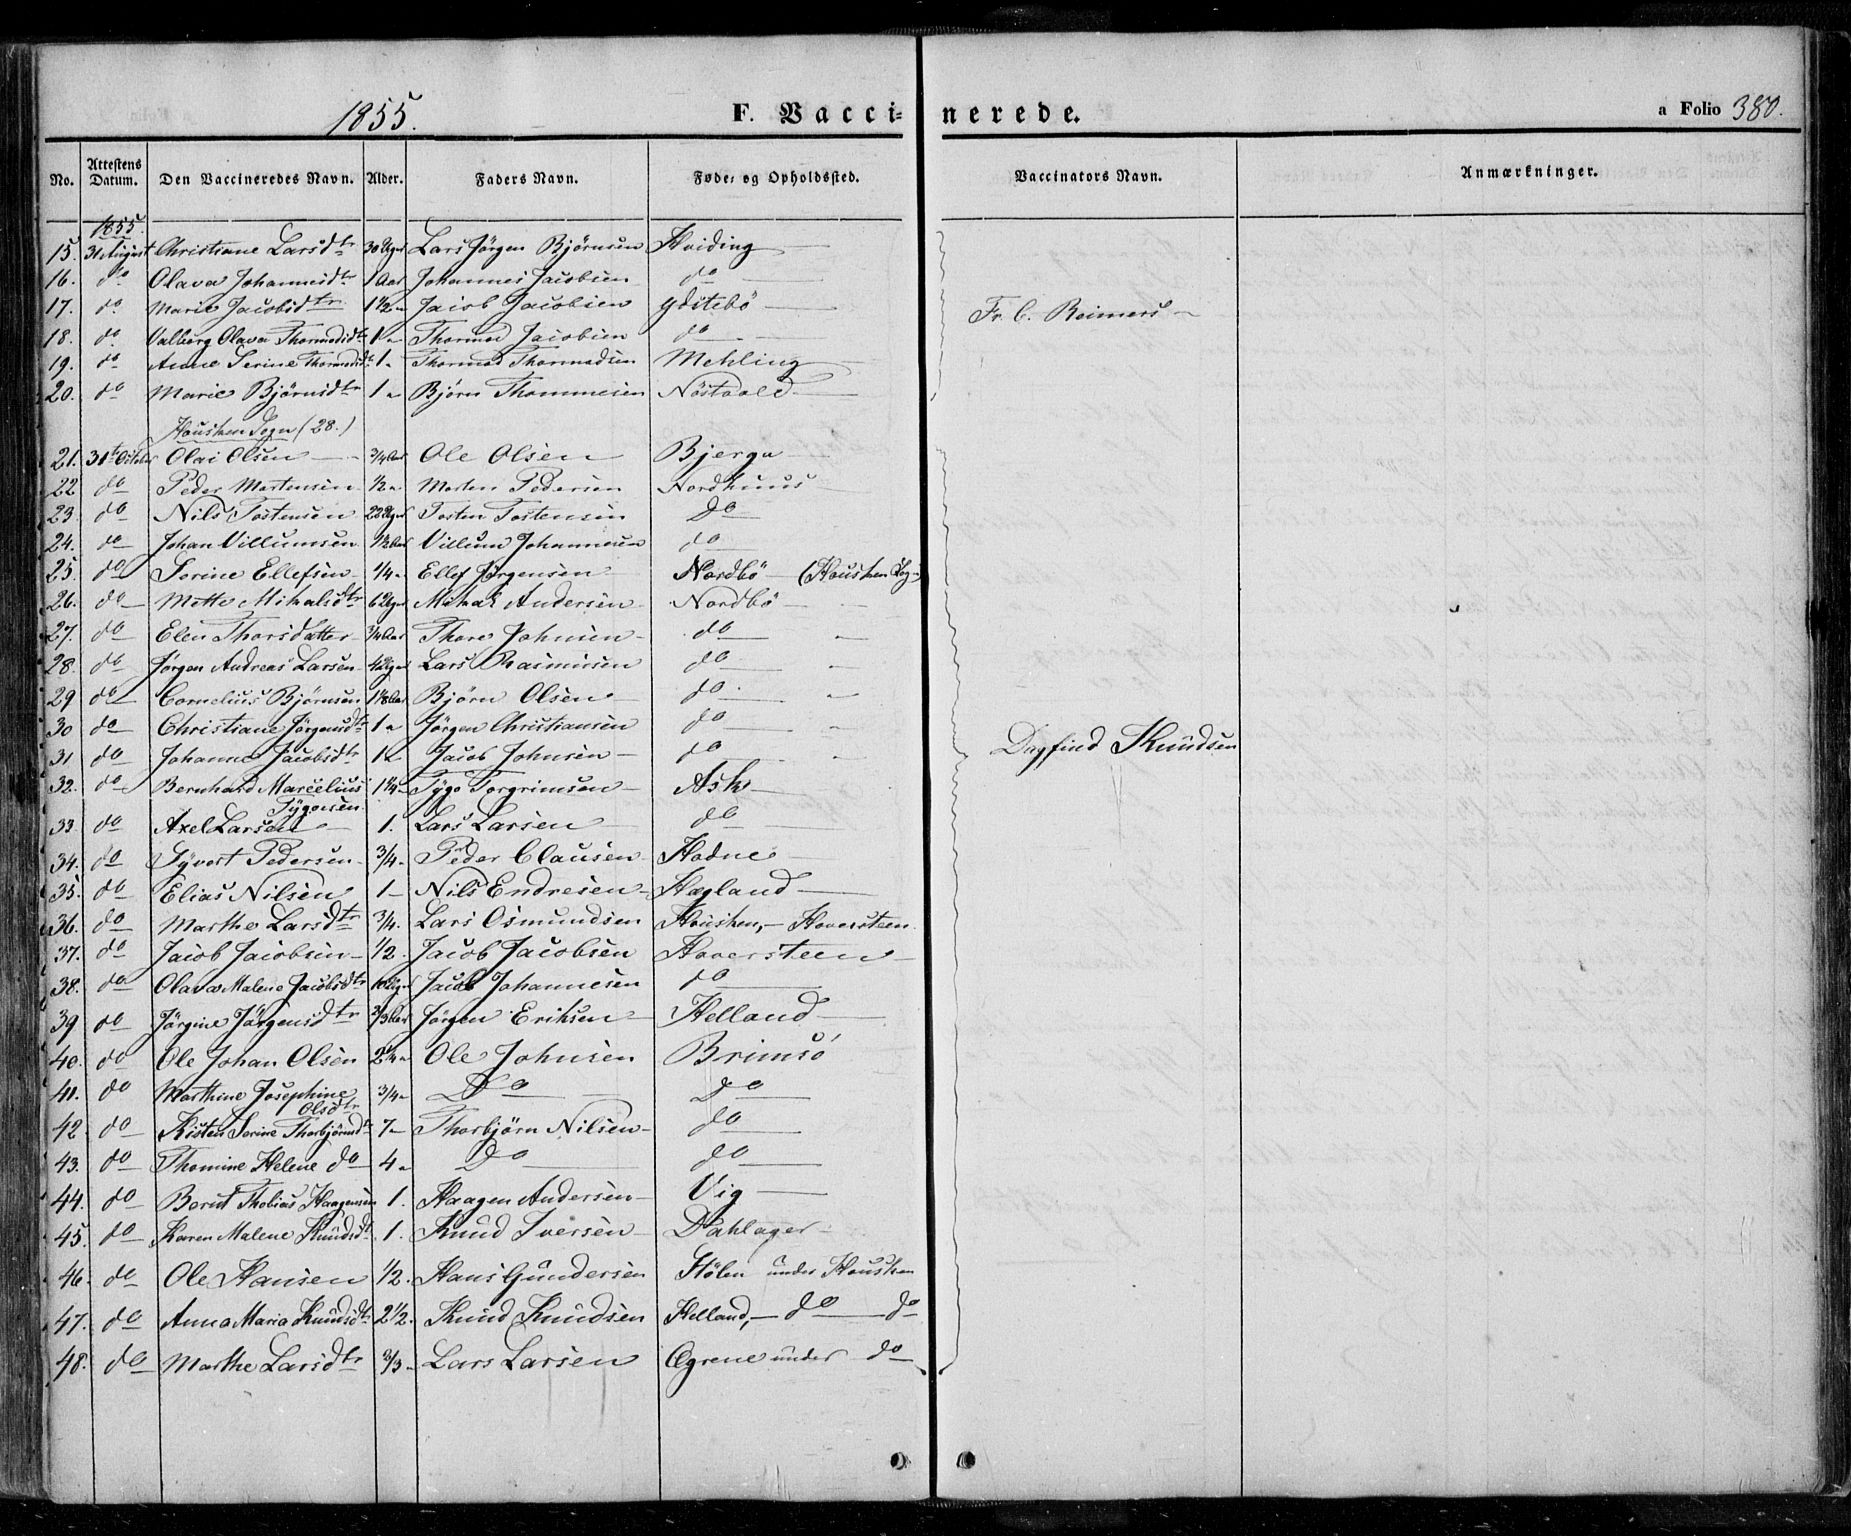 1855. F. Vacci= nerede. a Folio 380.
No. Attestens Datum. Den Vaccineredes Navn. Alder. Faders Navn. Føde- og Opholdssted. Vaccinators Navn. Anmærkninger.
1855.
15. 31 August Christiane Larsdtr 30 Uger Lars Jörgen Bjørnsen Hviding
16. do Olava Johannesdtr 1 Aar Johannes Jacobsen do
17. do Marie Jacobsdtr 1½ " Jacob Jacobsen Yditebö Fr. C. Reimers
18. do Valborg Olava Thormodsdtr 1 " Thormod Jacobsen do
19. do Anne Serine Thormodsdtr 1 " Thormod Thormodsen Mehling
20. do Marie Bjørnsdtr 1 " Bjørn Thommesen Nöstvold
Housken Sogn (28.)
21. 31te October Olai Olsen ¾ Aar Ole Olsen Bjerga
22 do Peder Mortensen ½ " Morten Pedersen Nordhuus
23. do Nils Tostensen 22 Uger Tosten Tostensen Do
24. do Johan Villumsen 1½ Aar Villum Johannesen do
25. do Serine Ellefsen ¼ " Ellef Jørgensen Nordbö (Housken Sogn)
26. do Mette Mikalsdtr 6 Uger Mikal Andersen Nordbö
27. do Elen Thorsdatter ¾ Aar Thore Johnsen do "
28. do Jørgen Andreas Larsen 42 Uger Lars Rasmusen do "
29 do Cornelius Bjørnsen 1⅛ Aar Bjørn Olsen do "
30 do Christiane Jørgensdtr 1 " Jørgen Christiansen do "
31 do Johanne Jacobsdtr 1 " Jacob Johnsen do " Dagfind Knudsen
32. do Bernhard Marcelius 1¼ " Tygo Torgrimsen Ask
Tygosen
33. do Axel Larsen 1. Lars Larsen do
34. do Syvert Pedersen ¾ " Peder Clausen Hodne
35. do Elias Nilsen 1 Nils Endresen Hagland
36. do Marthe Larsdtr ¾. Lars Osmundsen Housken, Hoversteen
37. do Jacob Jacobsen ½. Jacob Jacobsen Hoversteen
38. do Olava Malene Jacobsdtr 10 Uger Jacob Johannesen do
39 do Jørgine Jørgensdtr ⅔ Aar Jørgen Eriksen Helland
40. do Ole Johan Olsen 2¼ " Ole Johnsen Brimsö
41. do Marthine Josephine ¾ " Do Do
Olsdtr
42 do Kisten Serine Thorbjörnsdtr 7 Thorbjørn Nilsen do
43. do Thomine Helene do 4 " Do do
44. do Bernt Thobias Haagensen 1. Haagen Andersen Vig
45. do Karen Malene Knudsdtr 1. Knud Iversen Dahlager
46. do Ole Hansen ½. Hans Gundersen Stølen under Housken
47. do Anna Maria Knudsdtr 2½. Knud Knudsen Helland, do do
48. do Marthe Larsdtr ⅔ " Lars Larsen Øgrene under do